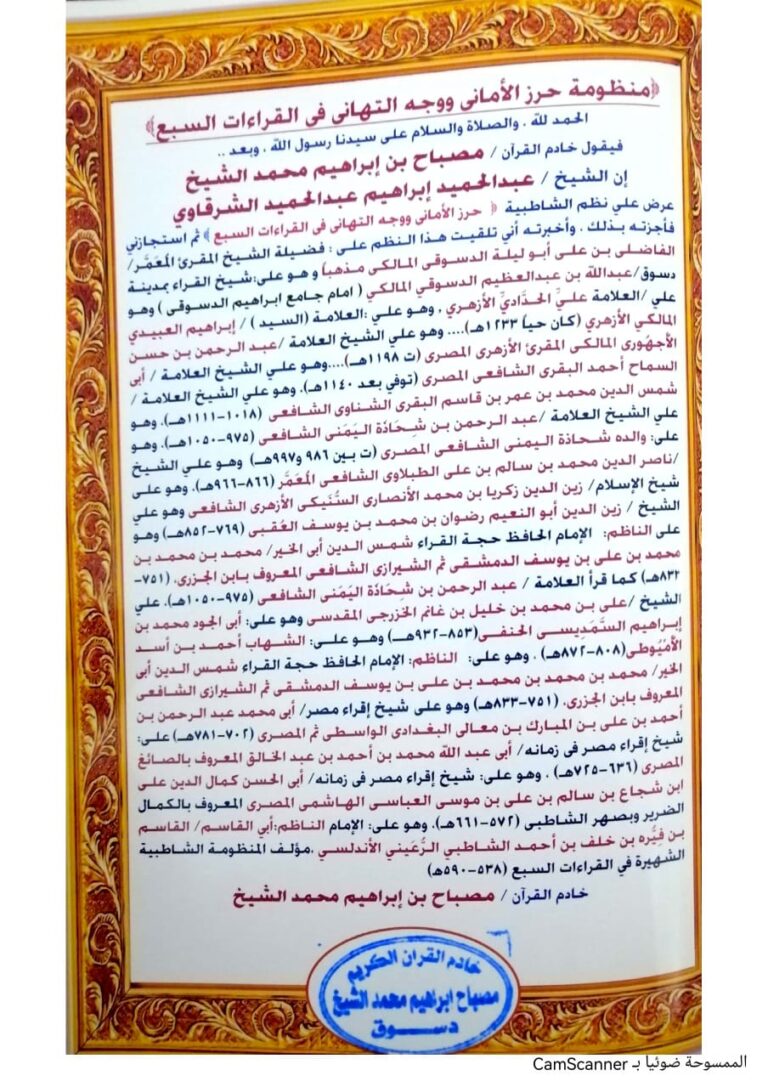 ﴿منظومة حرز الأمانى ووجه التهانى فى القراءات السبع﴾
الحمد لله . والصلاة والسلام على سيدنا رسول الله . وبعد ..
فيقول خادم القرآن / مصباح بن إبراهيم محمد الشيخ
إن الشيخ / عبدالحميد إبراهيم عبدالحميد الشرقاوي
عرض علي نظم الشاطبية ﴿ حرز الأمانى ووجه التهانى فى القراءات السبع﴾ ثم استجازني
فأجزته بذلك . وأخبرته أني تلقيت هذا النظم على : فضيلة الشيخ المقرئ المُعَمَّر/
الفاضلى بن على أبو ليلة الدسوقى المالكى مذهباً و هو على:شيخ القراء بمدينة
دسوق/عبدالله بن عبدالعظيم الدسوقي المالكي ( امام جامع ابراهيم الدسوقى ) وهو
علي /العلامة عليّ الحدّاديّ الأزهري , وهو علي :العلامة (السيد ) / إبراهيم العبيدي
المالكي الأزهري (كان حياً ١٢٣٣هـ).... وهو علي الشيخ العلامة /عبد الرحمن بن حسن
الأجهوري المالكى المقرئ الأزهرى المصرى (ت ١١٩٨هـ)....وهو علي الشيخ العلامة / أبى
السماح أحمد البقرى الشافعى المصرى (توفي بعد ١١٤٠هـ). وهو علي الشيخ العلامة /
شمس الدين محمد بن عمر بن قاسم البقرى الشناوى الشافعى (١٠١٨-١١١١هـ). وهو
علي الشيخ العلامة /عبد الرحمن بن شحاذة اليمنى الشافعى (٩٧٥-١٠٥٠هـ). وهو
على: والده شحاذة اليمنى الشافعى المصرى (ت بين ٩٨٦ و٩٩٧هـ) وهو علي الشيخ
/ناصر الدين محمد بن سالم بن على الطبلاوى الشافعى المُعَمَّر (٨٦٦-٩٦٦هـ). وهو على
شيخ الإسلام/ زين الدين زكريا بن محمد الأنصارى السُّنَيكى الأزهرى الشافعى وهو علي
الشيخ / زين الدين أبو النعيم رضوان بن محمد بن يوسف العُقبى (٧٦٩-٨٥٢هـ) وهو
على الناظم: الإمام الحافظ حجة القراء شمس الدين أبى الخير/ محمد بن محمد بن
محمد بن على بن يوسف الدمشقى ثم الشيرازى الشافعى المعروف بابن الجزرى. (٧٥١-
٨٣٢هـ) كما قرأ العلامة / عبد الرحمن بن شحاذة اليمنى الشافعى (٩٧٥-١٠٥٠هـ). علي
الشيخ /على بن محمد بن خليل بن غانم الخزرجى المقدسى وهو على: أبى الجود محمد بن
إبراهيم السَّمَديسى الحنفى(٨٥٣-٩٣٢هـ) وهو على: الشهاب أحمد بن أسد
الأُمْيُوطى(٨٠٨-٨٧٢هـ) . وهو على: الناظم: الإمام الحافظ حجة القراء شمس الدين أبى
الخير/ محمد بن محمد بن محمد بن على بن يوسف الدمشقى ثم الشيرازى الشافعى
المعروف بابن الجزرى. (٧٥١-٨٣٣هـ) وهو على شيخ إقراء مصر/ أبى محمد عبد الرحمن بن
أحمد بن على بن المبارك بن معالى البغدادى الواسطى ثم المصرى (٧٠٢-٧٨١هـ) على:
شيخ إقراء مصر فى زمانه/ أبى عبد الله محمد بن أحمد بن عبد الخالق المعروف بالصائغ
المصرى (٦٣٦-٧٢٥هـ) . وهو على: شيخ إقراء مصر فى زمانه/ أبى الحسن كمال الدين على
ابن شجاع بن سالم بن على بن موسى العباسى الهاشمى المصرى المعروف بالكمال
الضرير وبصهر الشاطبى (٥٧٢-٦٦١هـ). وهو على: الإمام الناظم:أبي القاسم/ القاسم
بن فِيُّره بن خلف بن أحمد الشاطبي الرُّعَيني الأندلسي ،مؤلف المنظومة الشاطبية
الشهيرة في القراءات السبع (٥٣٨-٥٩٠هـ)
خادم القرآن / مصباح بن إبراهيم محمد الشيخ
خادم القران الكريم
مصباح ابراهيم محمد الشيخ
دسوق
الممسوحة ضوئيا بـ CamScanner